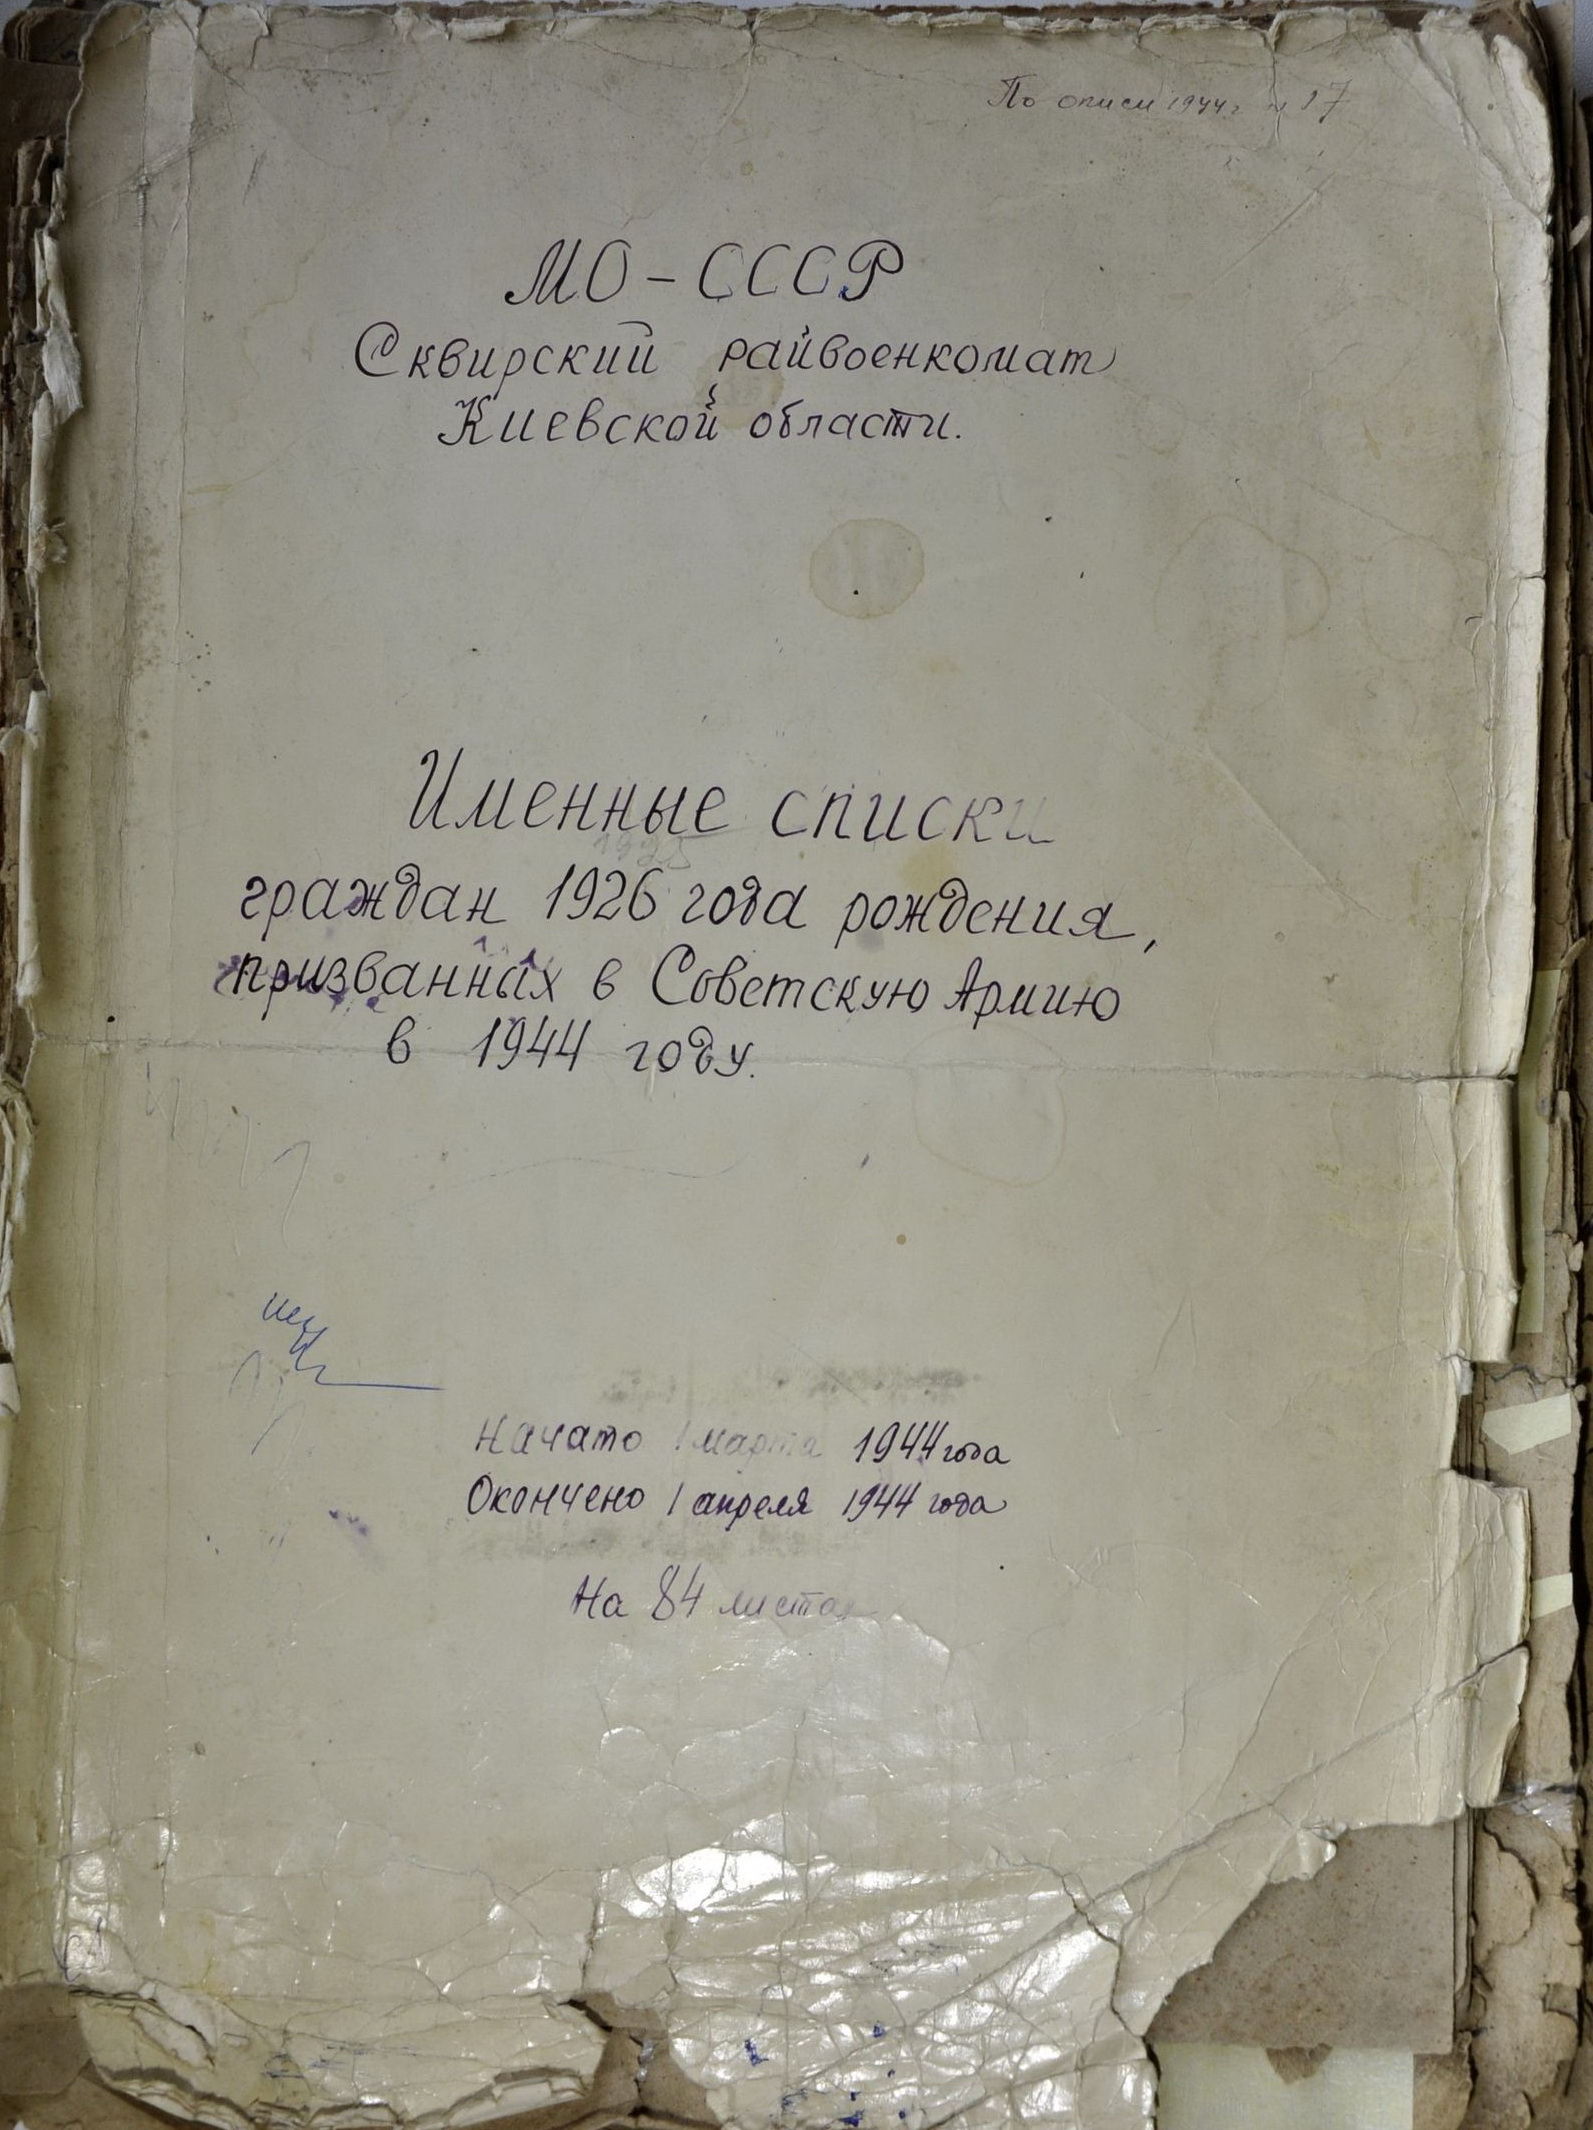 По описи 1944 г. № 17
МО - СССР
Сквирский райвоенкомат
Киевской области.
Именные списки
1925
граждан 1926 года рождения,
призванных в Советскую Армию
в 1944 году.
Начато 1 марта 1944 года
Окончено 1 апреля 1944 года
На 84 листах